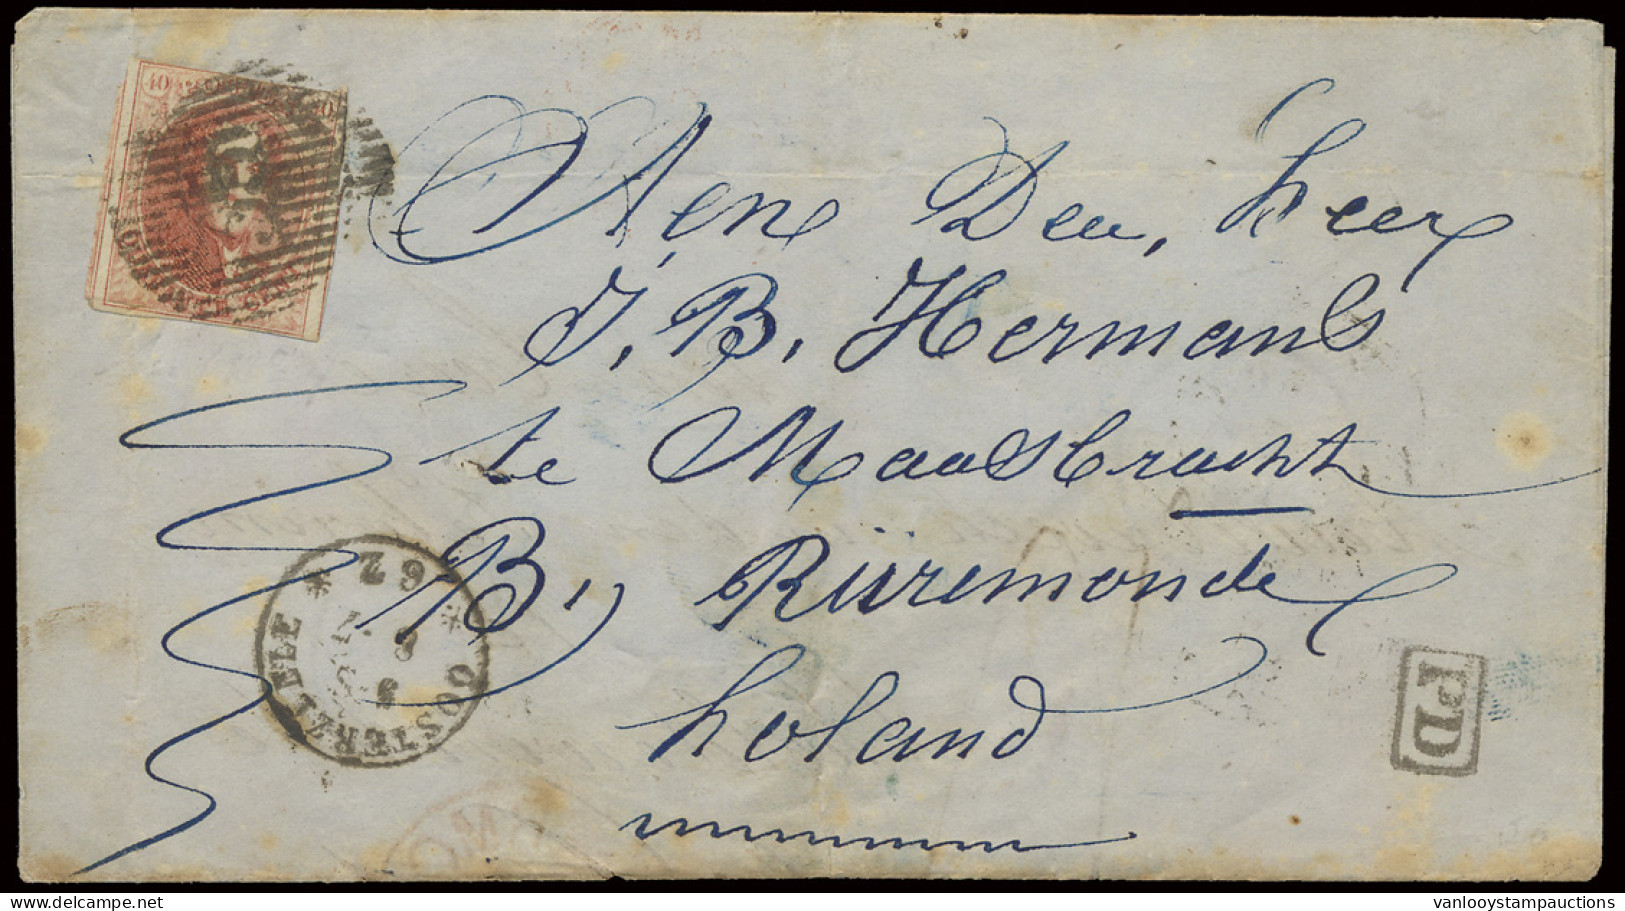 40
Aen Den, heer
J. B. Hermans
te Maasbracht
B, Rüremonde
holand
OOSTERZEELE
62
PD
vanlooystampauctions